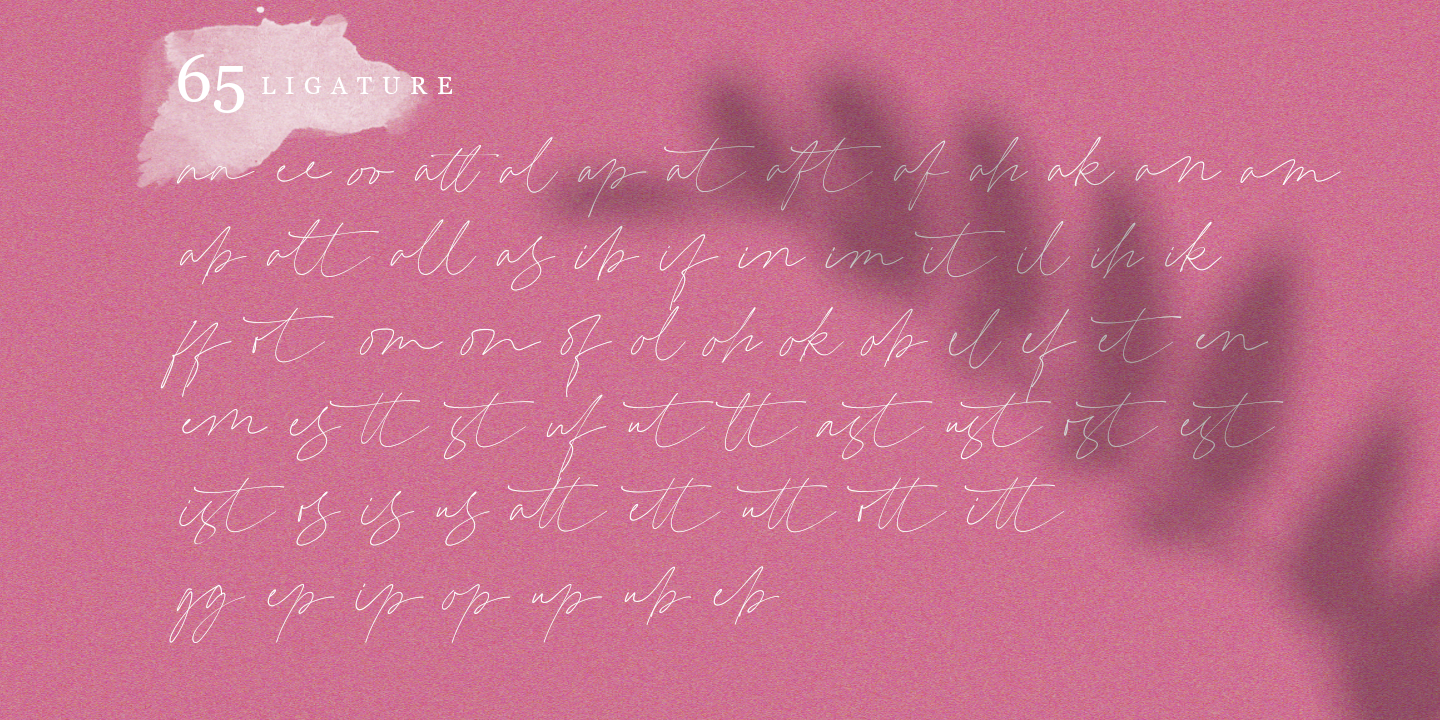 65 LIGATURE
nn ee oo att al ap at aft af ah ak an am
ab att all as ib if in im it il ih ik
ff rt om on of ol oh ok ob el ef et en
em es tt st uf ut tt ast ust rst est
ist rs is us att ett utt rtt itt
gg ep ip op up ub eb